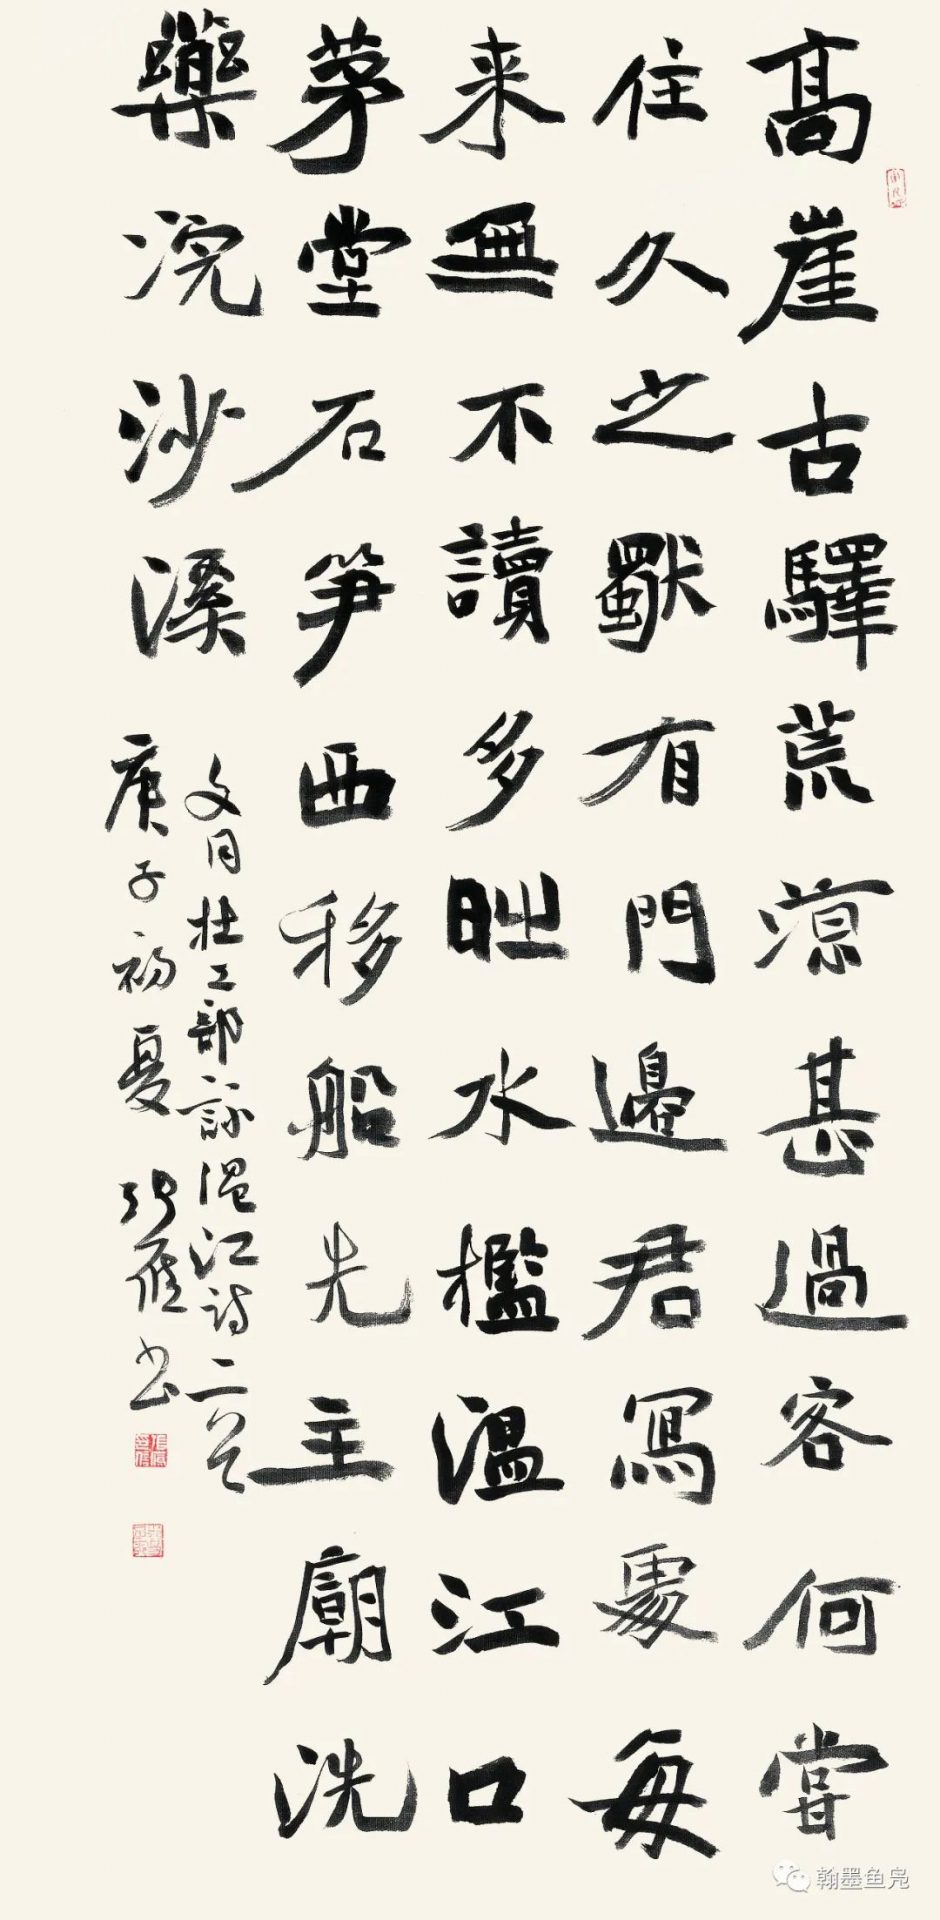 高崖古驛荒涼甚過客何嘗
住久之獨有門邊君寫處每
來無不讀多時水檻溫江口
茅堂石笋西移船先主廟洗
藥浣沙溪
文同杜工部詠溫江詩二首
庚子初夏 張書
翰墨鱼凫